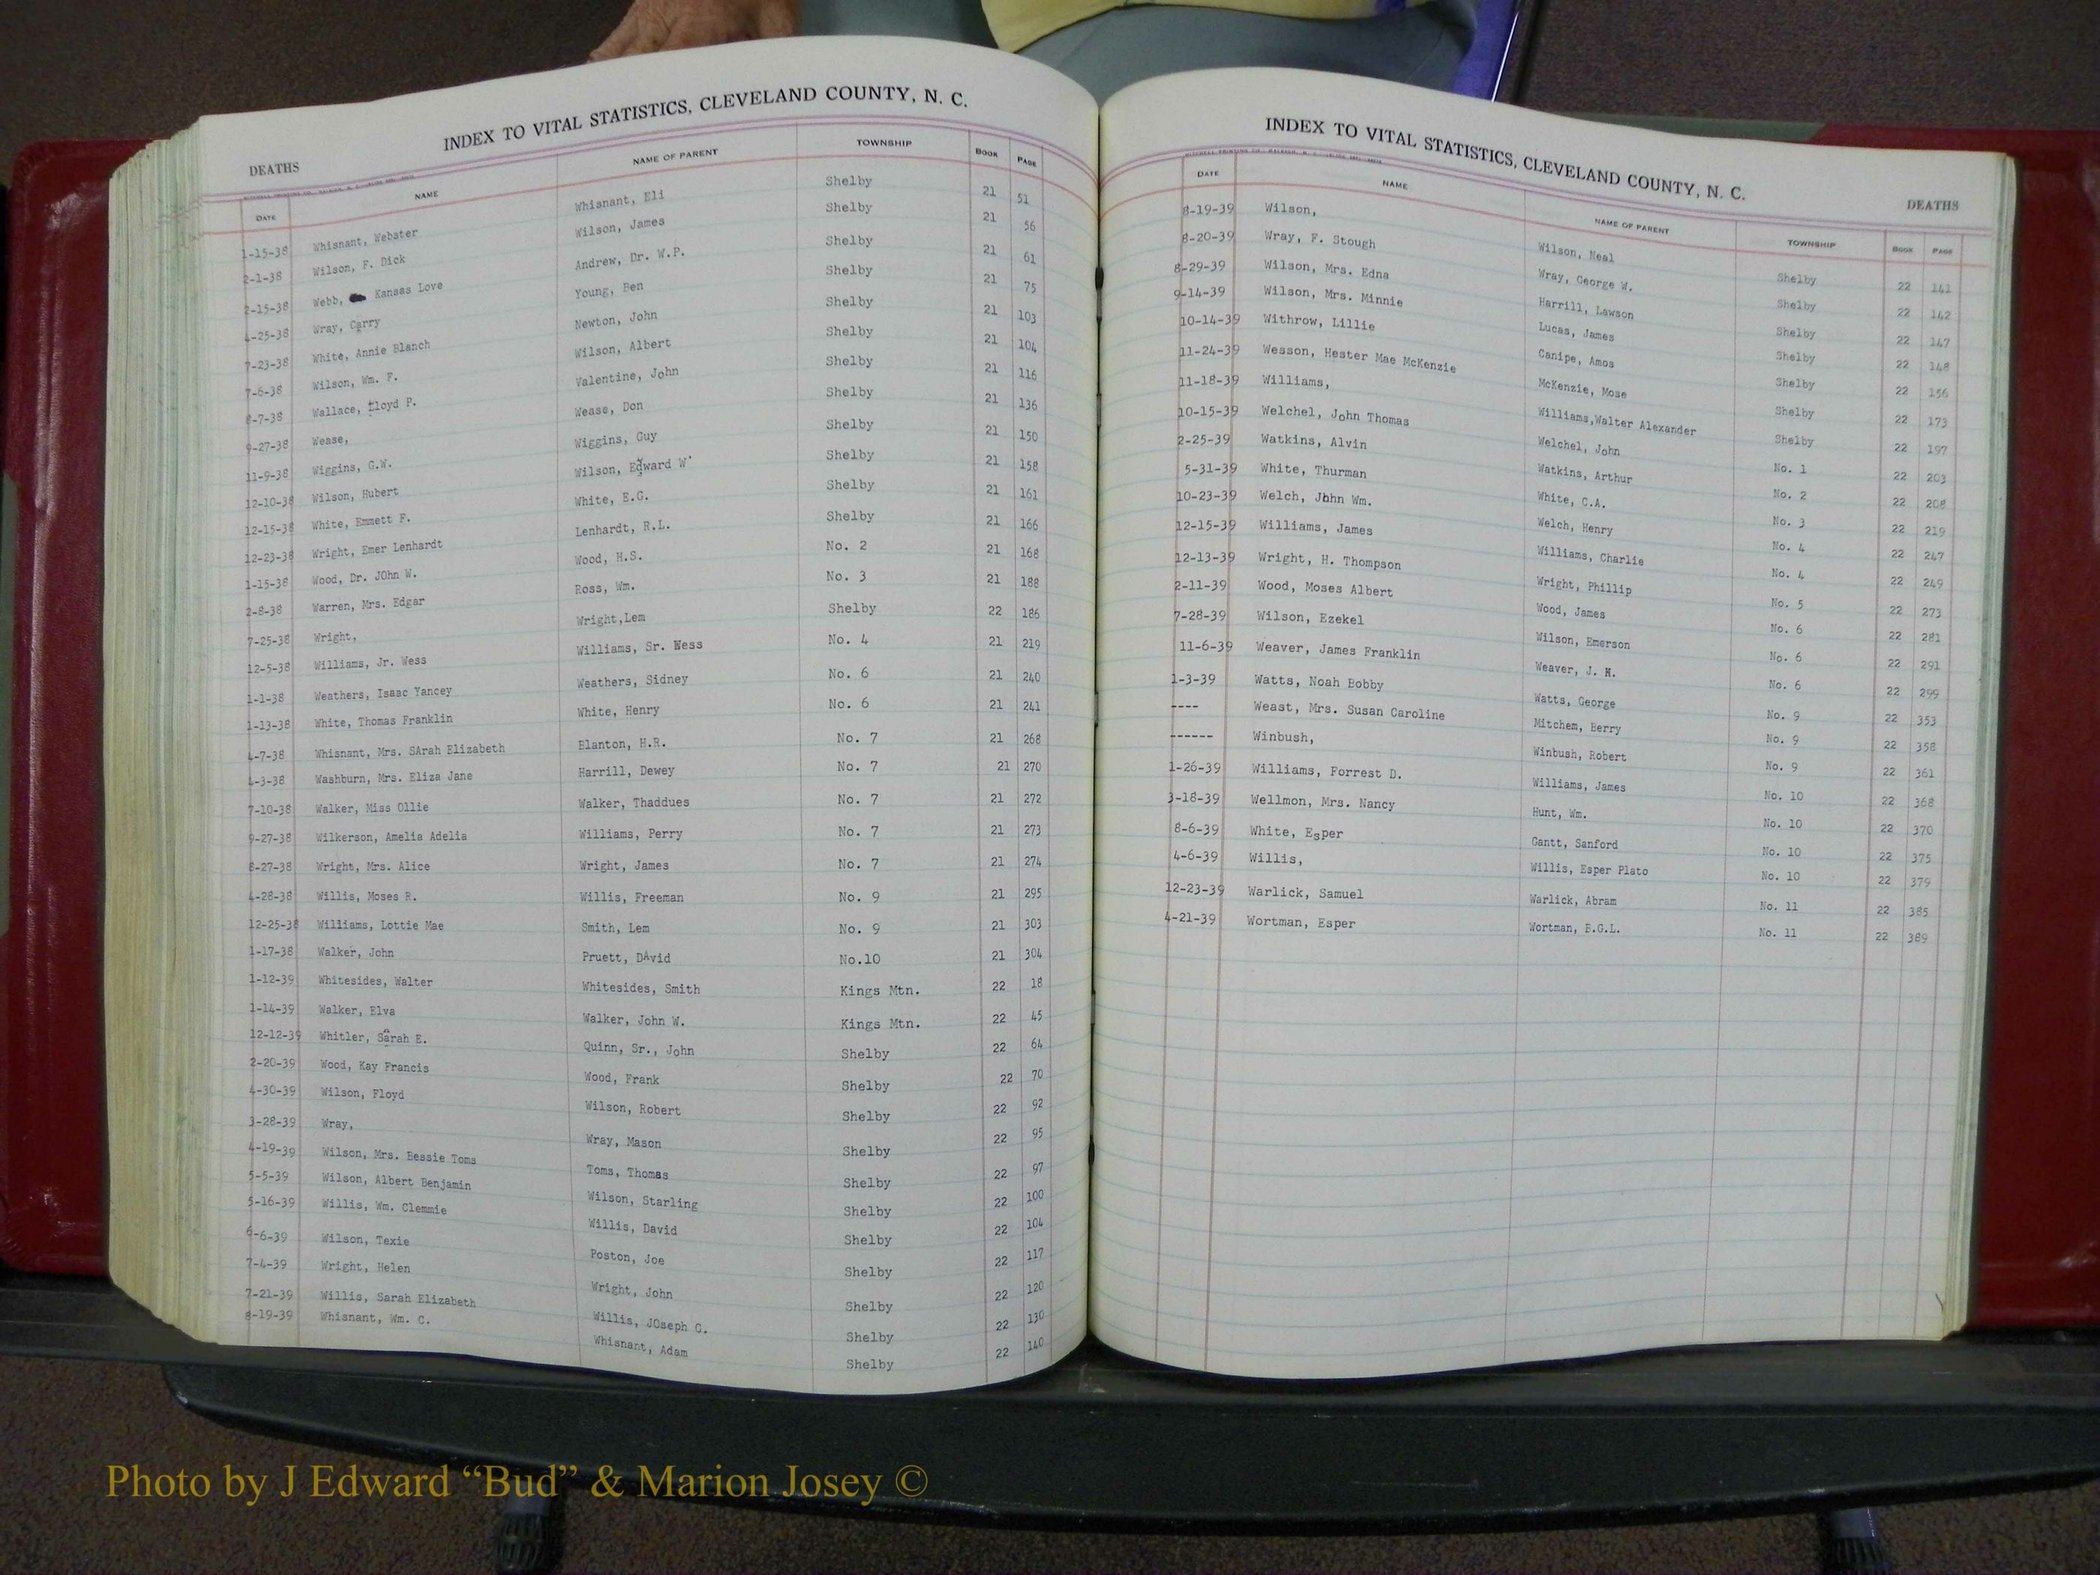 INDEX TO VITAL STATISTICS, CLEVELAND COUNTY, N. C.
DEATHS
DATE NAME NAME OF PARENT TOWNSHIP BOOK PAGE
1-15-38 Whisnant, Webster Whisnant, Eli Shelby 21 51
2-1-38 Wilson, F. Dick Wilson, James Shelby 21 56
2-15-38 Webb, Kansas Love Andrew, Dr. W.P. Shelby 21 61
4-25-38 Wray, Carry Young, Ben Shelby 21 75
7-23-38 White, Annie Blanch Newton, John Shelby 21 103
7-6-38 Wilson, Wm. F. Wilson, Albert Shelby 21 104
8-7-38 Wallace, Lloyd P. Valentine, John Shelby 21 116
9-27-38 Wease, Wease, Don Shelby 21 136
11-9-38 Wiggins, G.W. Wiggins, Guy Shelby 21 150
12-10-38 Wilson, Hubert Wilson, Edward W. Shelby 21 158
12-15-38 White, Emmett F. White, E.G. Shelby 21 161
12-23-38 Wright, Emer Lenhardt Lenhardt, R.L. Shelby 21 166
1-15-38 Wood, Dr. JOhn W. Wood, H.S. No. 2 21 168
2-8-38 Warren, Mrs. Edgar Ross, Wm. No. 3 21 188
7-25-38 Wright, Wright,Lem Shelby 22 186
12-5-38 Williams, Jr. Wess Williams, Sr. Wess No. 4 21 219
1-1-38 Weathers, Isaac Yancey Weathers, Sidney No. 6 21 240
1-13-38 White, Thomas Franklin White, Henry No. 6 21 241
4-7-38 Whisnant, Mrs. SArah Elizabeth Blanton, H.R. No. 7 21 268
4-3-38 Washburn, Mrs. Eliza Jane Harrill, Dewey No. 7 21 270
7-10-38 Walker, Miss Ollie Walker, Thaddues No. 7 21 272
9-27-38 Wilkerson, Amelia Adelia Williams, Perry No. 7 21 273
8-27-38 Wright, Mrs. Alice Wright, James No. 7 21 274
4-28-38 Willis, Moses R. Willis, Freeman No. 9 21 295
12-25-38 Williams, Lottie Mae Smith, Lem No. 9 21 303
1-17-38 Walker, John Pruett, DAvid No.10 21 304
1-12-39 Whitesides, Walter Whitesides, Smith Kings Mtn. 22 18
1-14-39 Walker, Elva Walker, John W. Kings Mtn. 22 45
12-12-39 Whitler, Sarah E. Quinn, Sr., John Shelby 22 64
2-20-39 Wood, Kay Francis Wood, Frank Shelby 22 70
4-30-39 Wilson, Floyd Wilson, Robert Shelby 22 92
3-28-39 Wray, Wray, Mason Shelby 22 95
4-19-39 Wilson, Mrs. Bessie Toms Toms, Thomas Shelby 22 97
5-5-39 Wilson, Albert Benjamin Wilson, Starling Shelby 22 100
5-16-39 Willis, Wm. Clemmie Willis, David Shelby 22 104
6-6-39 Wilson, Texie Poston, Joe Shelby 22 117
7-4-39 Wright, Helen Wright, John Shelby 22 120
7-21-39 Willis, Sarah Elizabeth Willis, JOseph G. Shelby 22 130
8-19-39 Whisnant, Wm. C. Whisnant, Adam Shelby 22 140
INDEX TO VITAL STATISTICS, CLEVELAND COUNTY, N. C.
DEATHS
DATE NAME NAME OF PARENT TOWNSHIP BOOK PAGE
8-19-39 Wilson, Wilson, Neal Shelby 22 141
8-20-39 Wray, F. Stough Wray, George W. Shelby 22 142
8-29-39 Wilson, Mrs. Edna Harrill, Lawson Shelby 22 147
9-14-39 Wilson, Mrs. Minnie Lucas, James Shelby 22 148
10-14-39 Withrow, Lillie Canipe, Amos Shelby 22 156
11-24-39 Wesson, Hester Mae McKenzie McKenzie, Mose Shelby 22 173
11-18-39 Williams, Williams,Walter Alexander Shelby 22 197
10-15-39 Welchel, John Thomas Welchel, John No. 1 22 203
2-25-39 Watkins, Alvin Watkins, Arthur No. 2 22 208
5-31-39 White, Thurman White, C.A. No. 3 22 219
10-23-39 Welch, John Wm. Welch, Henry No. 4 22 247
12-15-39 Williams, James Williams, Charlie No. 4 22 249
12-13-39 Wright, H. Thompson Wright, Phillip No. 5 22 273
2-11-39 Wood, Moses Albert Wood, James No. 6 22 281
7-28-39 Wilson, Ezekel Wilson, Emerson No. 6 22 291
11-6-39 Weaver, James Franklin Weaver, J. H. No. 6 22 299
1-3-39 Watts, Noah Bobby Watts, George No. 9 22 353
---- Weast, Mrs. Susan Caroline Mitchem, Berry No. 9 22 358
------ Winbush, Winbush, Robert No. 9 22 361
1-26-39 Williams, Forrest D. Williams, James No. 10 22 368
3-18-39 Wellmon, Mrs. Nancy Hunt, Wm. No. 10 22 370
8-6-39 White, Esper Gantt, Sanford No. 10 22 375
4-6-39 Willis, Willis, Esper Plato No. 10 22 379
12-23-39 Warlick, Samuel Warlick, Abram No. 11 22 385
4-21-39 Wortman, Esper Wortman, B.G.L. No. 11 22 389
Photo by J Edward “Bud” & Marion Josey ©